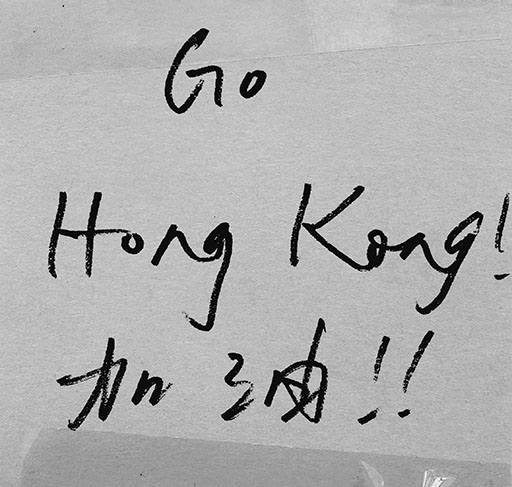 Go
Hong Kong!
加油!!